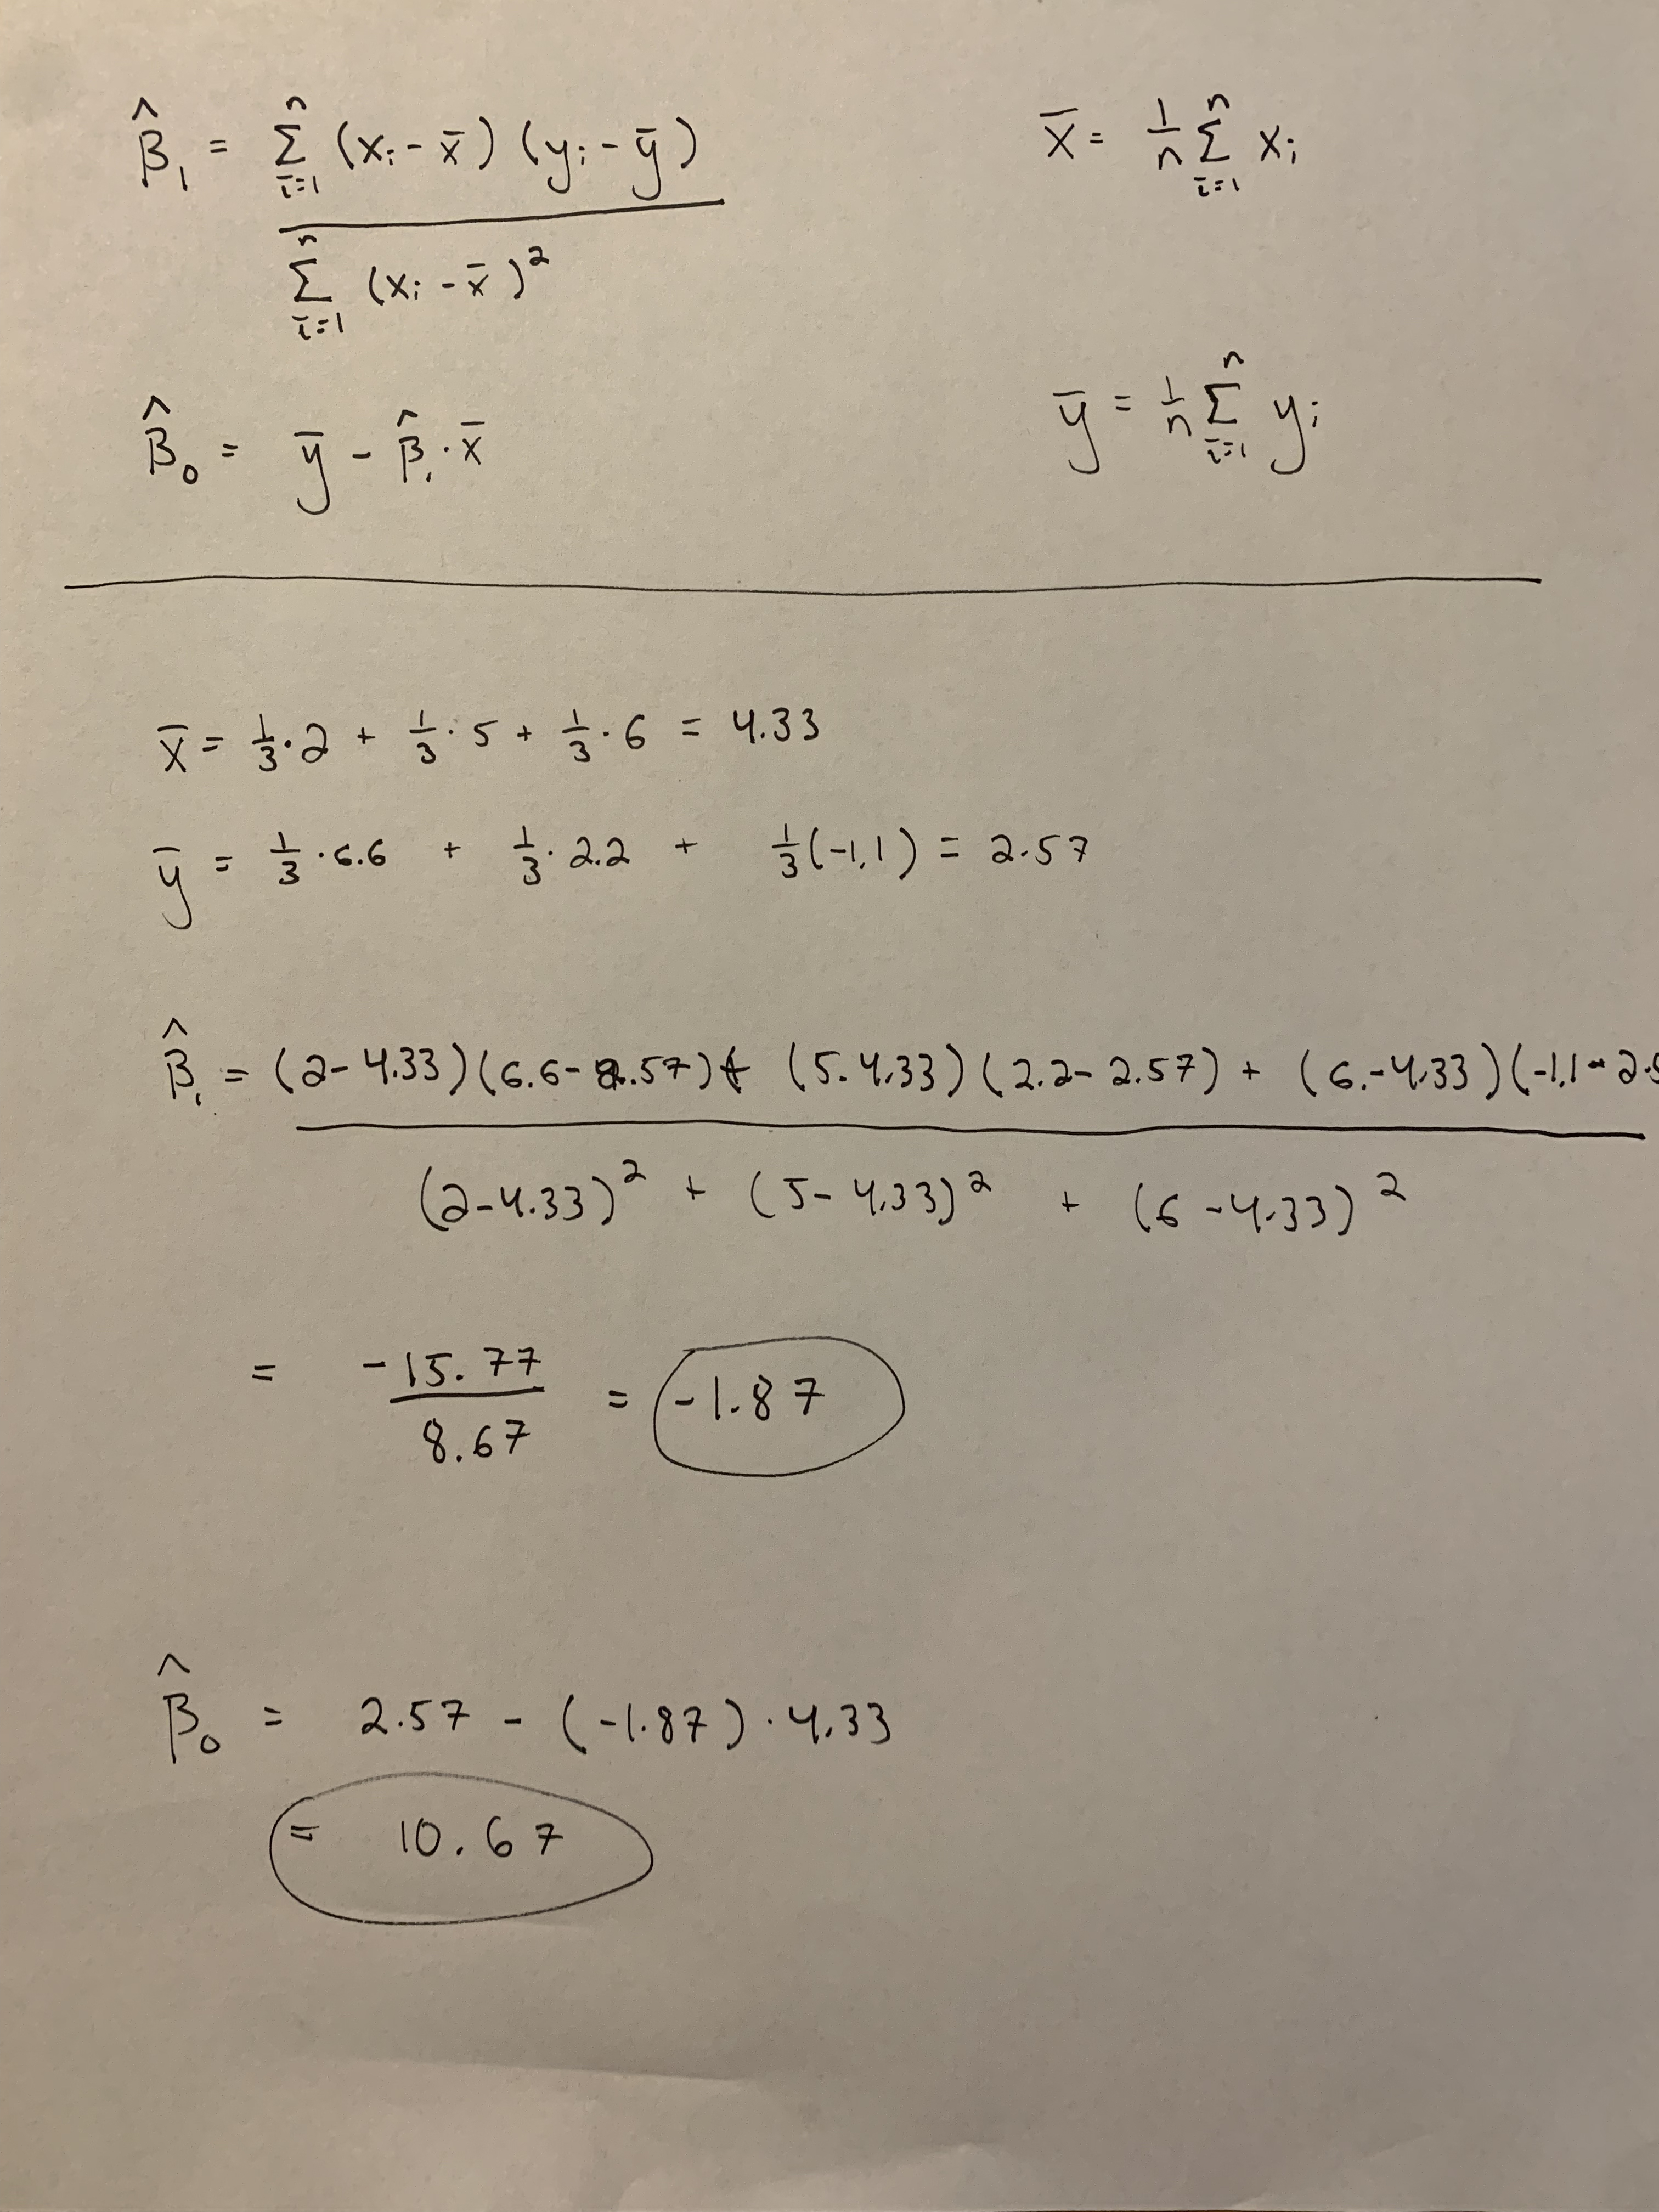 β̂₁ = Σⁿᵢ₌₁ (xᵢ - x̄) (yᵢ - ȳ)
x̄ = 1/n Σⁿᵢ₌₁ xᵢ
Σⁿᵢ₌₁ (xᵢ - x̄)²
β̂₀ = ȳ - β̂₁ · x̄
ȳ = 1/n Σⁿᵢ₌₁ yᵢ
x̄ = 1/3 · 2 + 1/3 · 5 + 1/3 · 6 = 4.33
ȳ = 1/3 · 6.6 + 1/3 · 2.2 + 1/3 (-1.1) = 2.57
β̂₁ = (2 - 4.33)(6.6 - 2.57) + (5. 4.33)(2.2 - 2.57) + (6. - 4.33)(-1.1 - 2.5
(2 - 4.33)² + (5 - 4.33)² + (6 - 4.33)²
= -15.77 / 8.67 = -1.87
β̂₀ = 2.57 - (-1.87) · 4.33
= 10.67